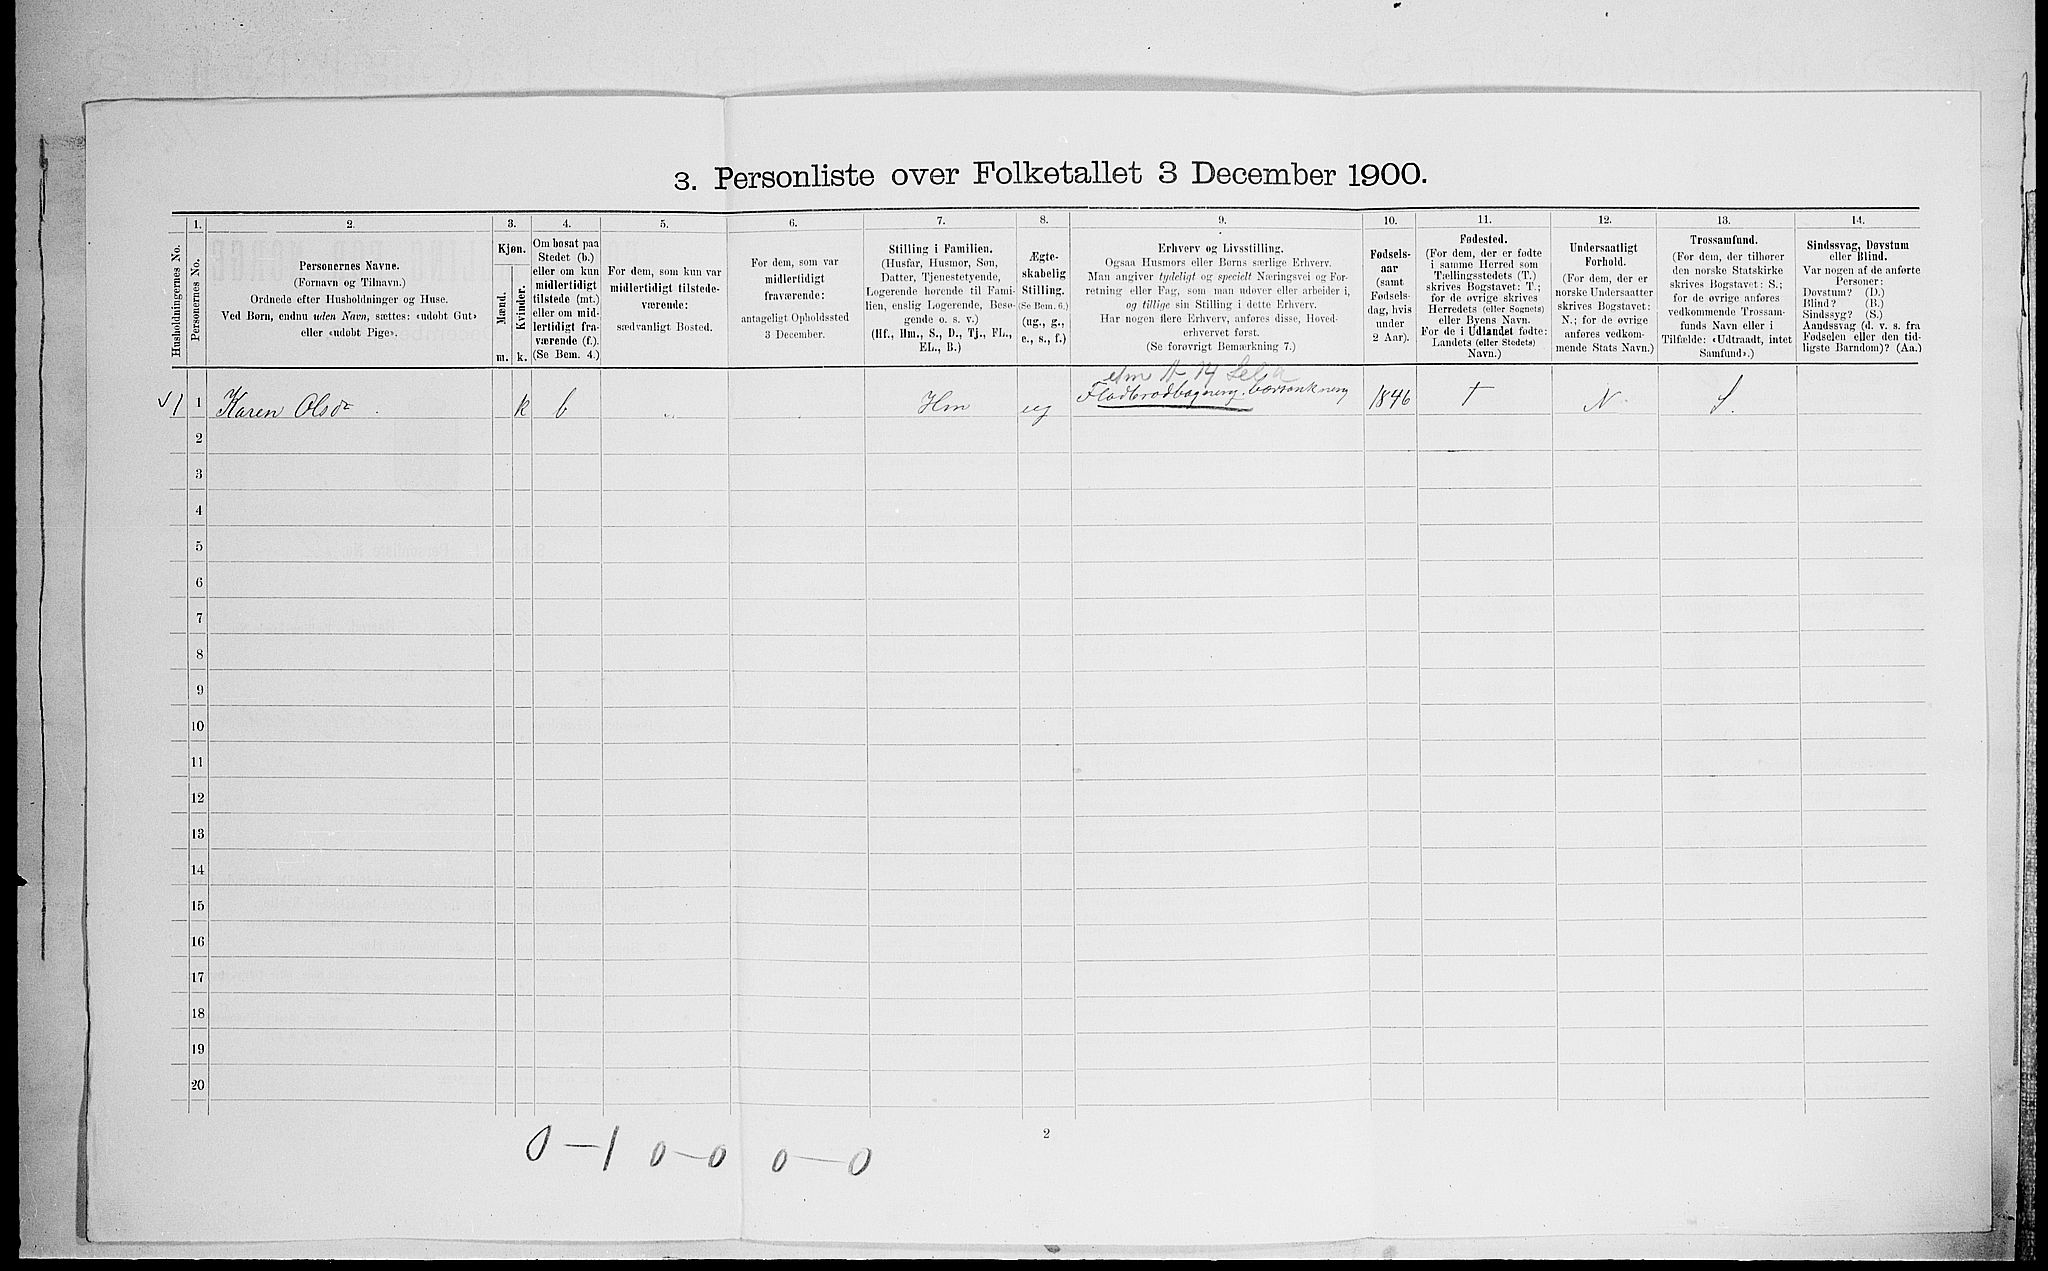 3. Personliste over Folketallet 3 December 1900.
1. 2. 3. 4. 5. 6. 7. 8. 9. 10. 11. 12. 13. 14.
Husholdningernes No.
Personernes No.
Personernes Navne.
(Fornavn og Tilnavn.)
Ordnede efter Husholdninger og Huse.
Ved Børn, endnu uden Navn, sættes: «udøbt Gut»
eller «udøbt Pige».
Kjøn.
Mænd.
Kvinder.
m. k.
Om bosat paa
Stedet (b.)
eller om kun
midlertidigt
tilstede (mt.)
eller om mid-
lertidigt fra-
værende (f.)
(Se Bem. 4.)
For dem, som kun var
midlertidigt tilstede-
værende:
sædvanligt Bosted.
For dem, som var
midlertidigt
fraværende:
antageligt Opholdssted
3 December.
Stilling i Familien.
(Husfar, Husmor, Søn,
Datter, Tjenestetyende,
Logerende hørende til Fami-
lien, enslig Logerende, Besø-
gende o. s. v.)
(Hf., Hm., S., D., Tj., FL.,
EL., B.)
Ægte-
skabelig
Stilling.
(Se Bem. 6.)
(ug., g.,
e., s., f.)
Erhverv og Livsstilling.
Ogsaa Husmors eller Børns særlige Erhverv.
Man angiver tydeligt og specielt Næringsvei og For-
retning eller Fag, som man udøver eller arbeider i,
og tillige sin Stilling i dette Erhverv.
Har nogen flere Erhverv, anføres disse, Hoved-
erhvervet først.
(Se forøvrigt Bemærkning 7.)
Fødsels-
aar
(samt
Fødsels-
dag, hvis
under
2 Aar).
Fødested.
(For dem, der er fødte
i samme Herred som
Tællingsstedets (T.)
skrives Bogstavet: T.;
for de øvrige skrives
Herredets (eller Sognets)
eller Byens Navn.
For de i Udlandet fødte:
Landets (eller Stedets)
Navn.)
Undersaatligt
Forhold.
(For dem, der er
norske Undersaatter
skrives Bogstavet:
N.; for de øvrige
anføres vedkom-
mende Stats Navn.)
Trossamfund.
(For dem, der tilhører
den norske Statskirke
skrives Bogstavet: S.;
for de øvrige anføres
vedkommende Trossam-
funds Navn eller i
Tilfælde: «Udtraadt, intet
Samfund».)
Sindssvag, Døvstum
eller Blind.
Var nogen af de anførte
Personer:
Døvstum? (D.)
Blind? (B.)
Sindssyg? (S.)
Aandssvag (d. v. s. fra
Fødselen eller den tid-
ligste Barndom)? (Aa.)
1 1 Karen Olsdr k b Hm ug Fladbrødbagning, 1846 T N. S.
2
3
4
5
6
7
8
9
10
11
12
13
14
15
16
17
18
19
20
2
0-1 0-0 0-0